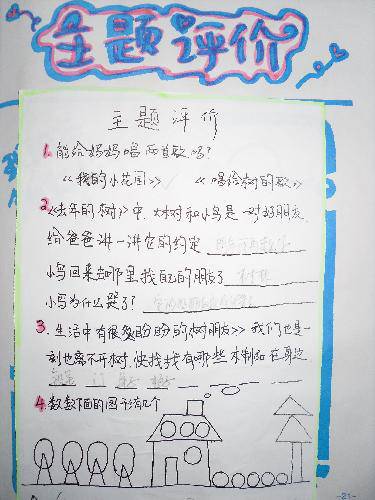 主题评价
主题评价
1. 能给妈妈唱两首歌吗？
《我的小花园》 《唱给树的歌》
2. 《去年的树》中，大树和小鸟是一对好朋友，
给爸爸讲一讲它的约定
小鸟回来去哪里找自己的朋友了
小鸟为什么哭了？
3. 生活中有很多盼盼的树朋友》我们也是一
刻也离不开树，快找找有哪些木制品在身边
门
4. 数数下面的图形有几个
-21-